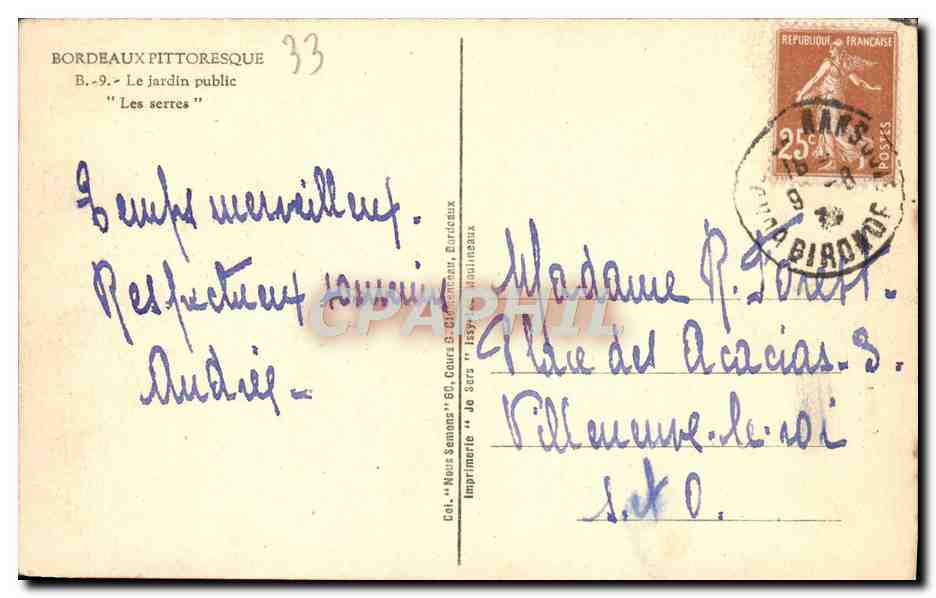 BORDEAUX PITTORESQUE
B.-9.- Le jardin public
"Les serres"
33
Temps merveilleux.
Respectueux souvenirs
Andrée
Col. "Nous Semons" 60, Cours G. Clémenceau, Bordeaux
Imprimerie "Je Sers" Issy-les-Moulineaux
REPUBLIQUE FRANÇAISE
25c
POSTES
16 - 8
GIRONDE
Madame R. Forest.
Place des Acacias. 3.
Villeneuve-le-roi
S. et O.
CPAPHIL